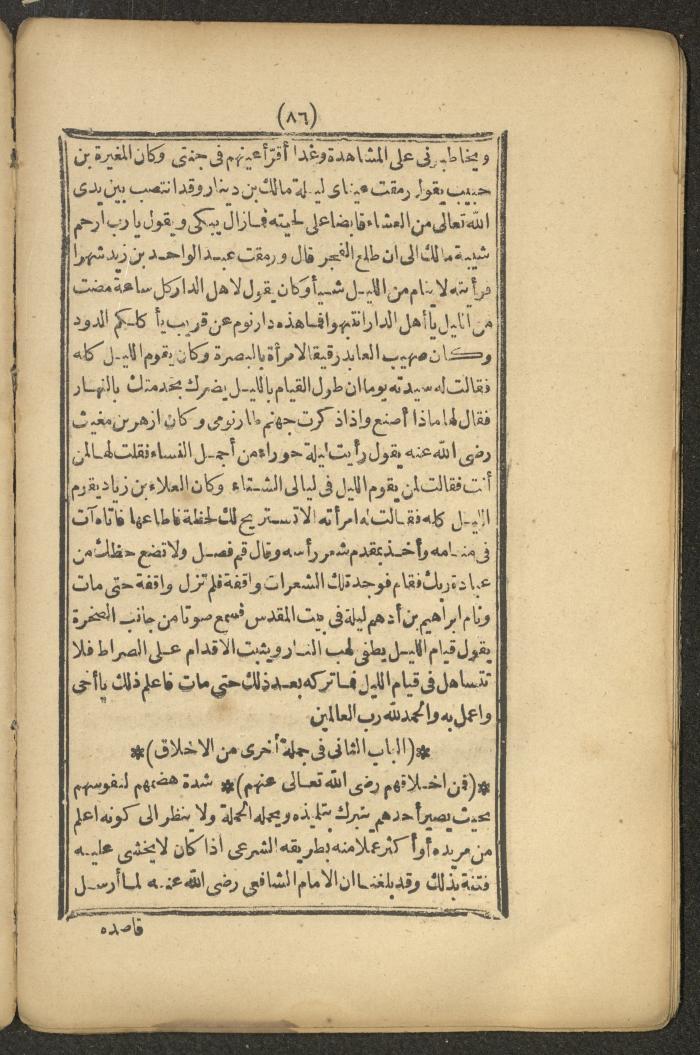 (٨٦)
ويخاطبوني على المشاهدة وغدا أقرّ أعينهم في جنتي وكان المغيرة بن
حبيب يقول رمقت عيناي ليلة مالك بن دينار وقد انتصب بين يدي
الله تعالى من العشاء قابضا على لحيته فما زال يبكي ويقول يا رب ارحم
شيبة مالك الى ان طلع الفجر قال ورمقت عبد الواحد بن زيد شهرا
فرأيته لا ينام من الليل شيأ وكان يقول لاهل الدار كل ساعة مضت
من الليل يا أهل الدار انتبهوا فما هذه دار نوم عن قريب يأكلكم الدود
وكان صهيب العابد رقيقا لامرأة بالبصرة وكان يقوم الليل كله
فقالت له سيدته يوما ان طول القيام بالليل يضرك بخدمتك بالنهار
فقال لها ماذا أصنع واذا ذكرت جهنم طار نومي وكان ازهر بن مغيث
رضي الله عنه يقول رأيت ليلة حوراء من أجمل النساء فقلت لها لمن
أنت فقالت لمن يقوم الليل في ليالي الشتاء وكان العلاء بن زياد يقوم
الليل كله فقالت له امرأته الا تستريح لك لحظة فاطاعها فاتاه آت
في منامه وأخذ بمقدم شعر رأسه وقال قم فصل ولا تضع حظك من
عبادة ربك فقام فوجد تلك الشعرات واقفة فلم تزل واقفة حتى مات
ونام ابراهيم بن أدهم ليلة في بيت المقدس فسمع صوتا من جانب الصخرة
يقول قيام الليل يطفي لهب النار ويثبت الاقدام على الصراط فلا
تتساهل في قيام الليل فما تركه بعد ذلك حتى مات فاعلم ذلك يا أخي
واعمل به والحمد لله رب العالمين
*(الباب الثاني في جملة أخرى من الاخلاق)*
*(فمن اخلاقهم رضي الله تعالى عنهم)* شدة هضمهم لنفوسهم
بحيث يصير أحدهم يتبرك بتلميذه ويحمله الحملة ولا ينظر الى كونه اعلم
من مريده أو أكثر عملا منه بطريقه الشرعي اذا كان لا يخشى عليه
فتنة بذلك وقد بلغنا ان الامام الشافعي رضي الله عنه لما أرسل
قاصده